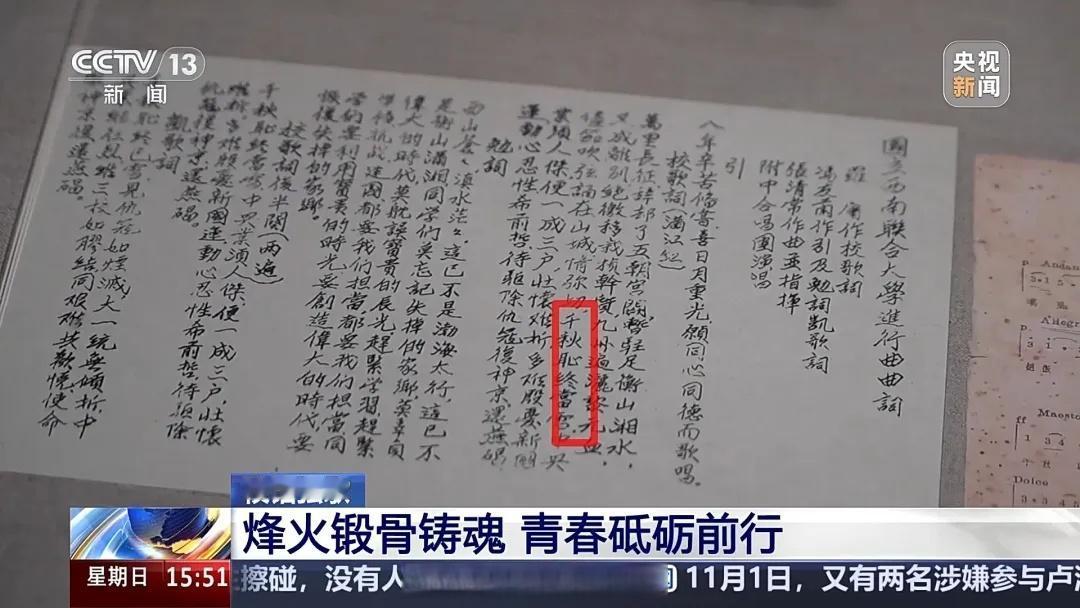 CCTV 13
新闻
央视
新闻
國立西南聯合大學進行曲曲詞
羅庸作校歌詞
馮友蘭作引及勉詞凱歌詞
張清常作曲並指揮
附中合唱團演唱
引
八年辛苦備嘗喜日月重光願同心同德而歌唱。
校歌詞(滿江紅)
萬里長征辭却了五朝宮闕暫駐足衡山湘水,
又成離別絕徼移栽楨幹質九州遍灑黎元血,
儘笳吹弦誦在山城情彌切千秋恥終當雪中興
業須人傑便一成三戶壯懷難折多難殷憂新國
運動心忍性希前哲待驅除仇寇復神京還燕碣。
勉詞
西山蒼々滇水茫々這已不是渤海太行,這已不
是衡山瀟湘同學們莫忘記失掉的家鄉莫辜負
偉大的時代莫耽誤寶貴的辰光趕緊學習,趕緊
準備抗戰建國都要我們担當,都要我們担當同
學們要利用寶貴的時光要創造偉大的時代,要
恢復失掉的家鄉。
校歌詞後半闋(兩遍)
千秋恥終當雪中興業須人傑,便一成三戶,壯懷
難折,多難殷憂新國運動心忍性希前哲待須除
仇寇復神京還燕碣。
凱歌詞
秋恥終已雪見仇寇如煙滅大一統無傾折,中
繼往烈維三校如膠結同艱難共歡悅使命
神京還燕碣。
Andan
Allegr
ff Maesto
Dolce
烽火锻骨铸魂 青春砥砺前行
星期日 15:51
擦碰，没有人
11月1日，又有两名涉嫌参与卢